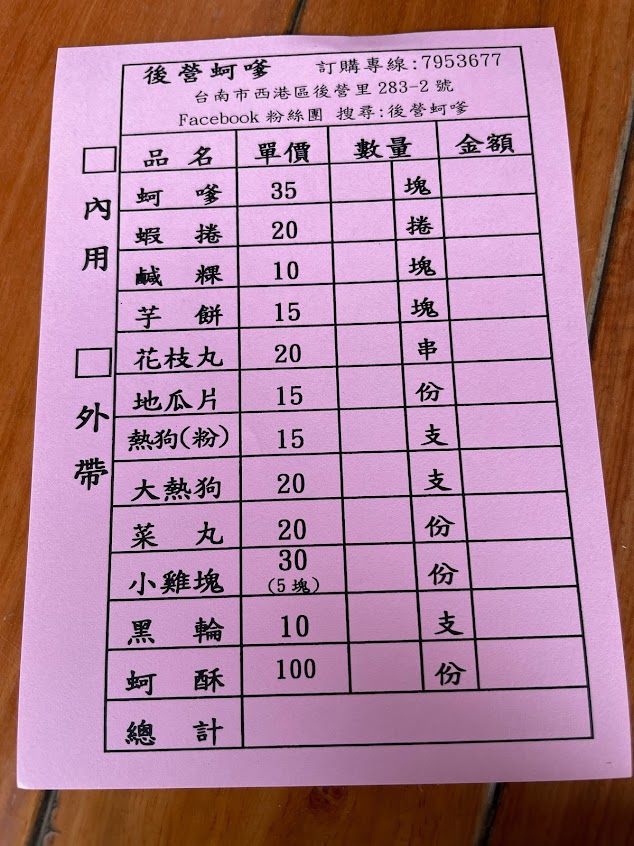 後營蚵嗲 訂購專線:7953677
台南市西港區後營里 283-2 號
Facebook 粉絲團 搜尋:後營蚵嗲
□ 內用
□ 外帶
品名 單價 數量 金額
蚵嗲 35 塊
蝦捲 20 捲
鹹粿 10 塊
芋餅 15 塊
花枝丸 20 串
地瓜片 15 份
熱狗(粉) 15 支
大熱狗 20 支
菜丸 20 份
小雞塊 30 (5塊) 份
黑輪 10 支
蚵酥 100 份
總計